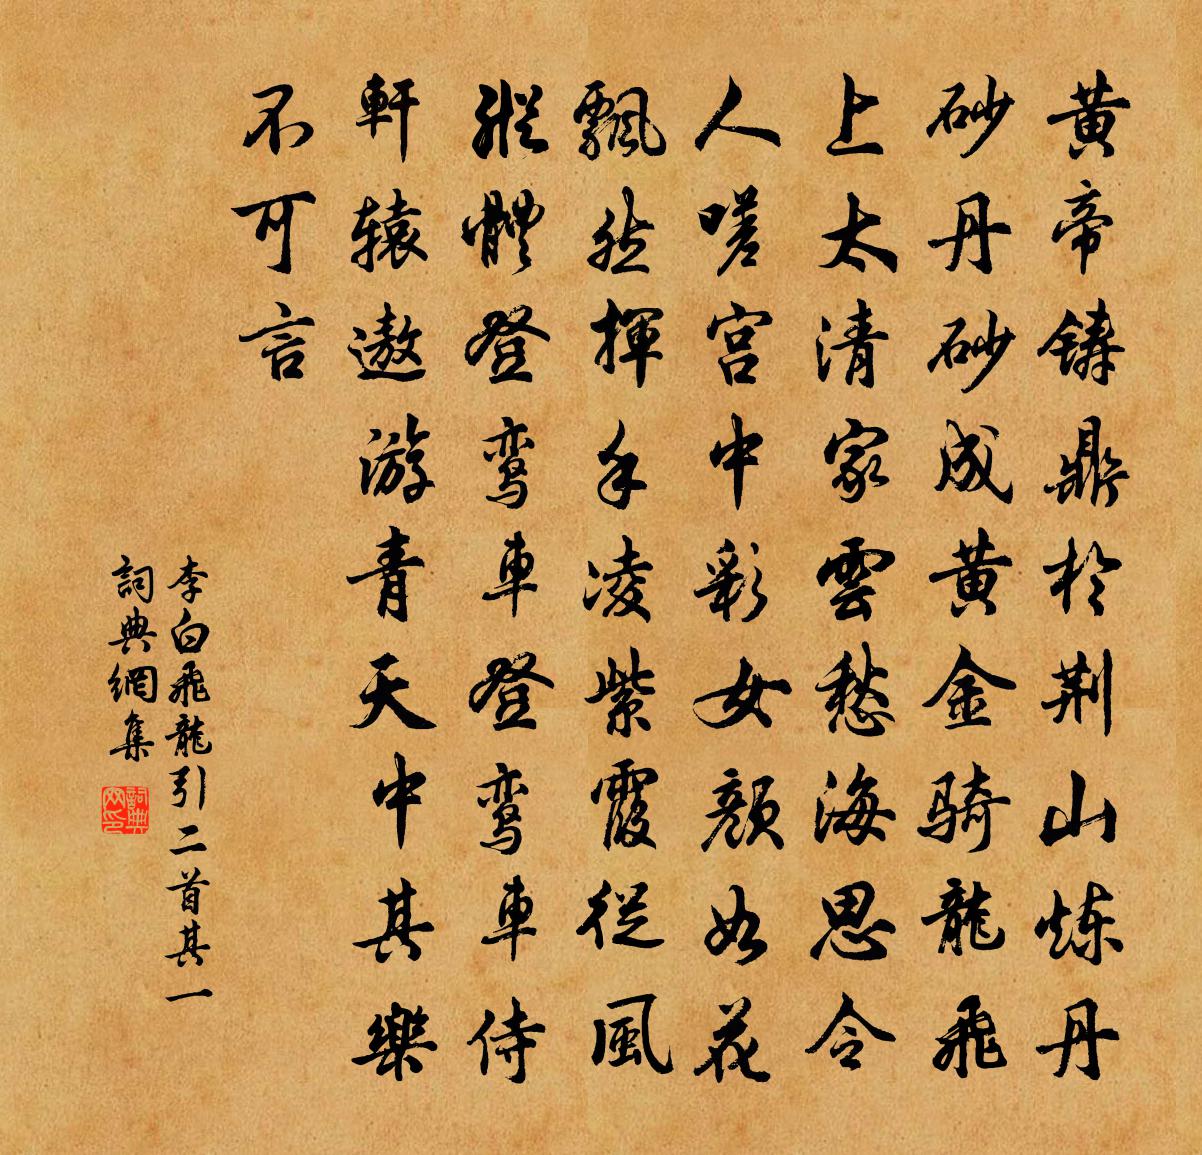 黄帝鑄鼎於荆山炼丹
砂丹砂成黄金骑龍飛
上太清家雲愁海思令
人嗟宫中彩女顔如花
飄然揮手凌紫霞從風
縱體登鸾車登鸾車侍
軒辕遨游青天中其樂
不可言
李白飛龍引二首其一
詞典網集
詞典网印